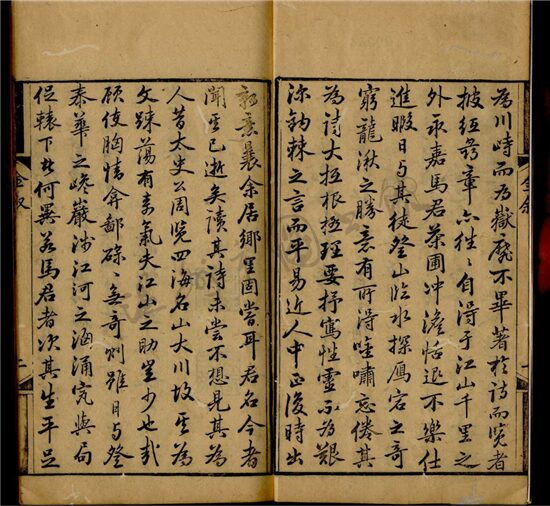 為川時而為嶽靡不畢著於詩而覽者
披尋章亦往〻自得于江山千里之
外永嘉馬君茶圃冲澹恬退不樂仕
進暇日與其徒登山臨水探雁宕之奇
窮龍湫之勝意有所得嘯忘倦其
為詩大抵根極理要抒寫性靈不為艱
深鈎棘之言而平易近人中正復時出
新意曩余居鄉里固嘗耳君名今者
聞其已逝矣讀其詩未嘗不想見其為
人昔太史公周覽四海名山大川故其為
文踈蕩有奇氣夫江山之助豈少也哉
顧使胸情弇鄙碌〻無奇則雖日與登
泰華之巉巖涉江河之洶涌究與局
促轅下者何異若馬君者次其生平足
金敘
二